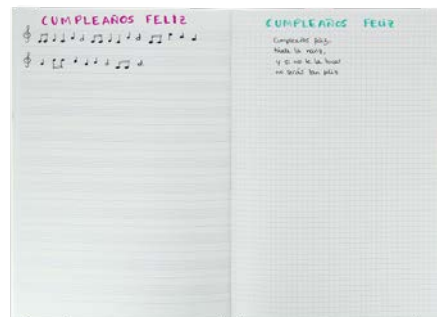 CUMPLEAÑOS FELIZ
CUMPLEAÑOS FELIZ
Cumpleaños feliz,
la nariz,
y si no te la
no serás tan feliz